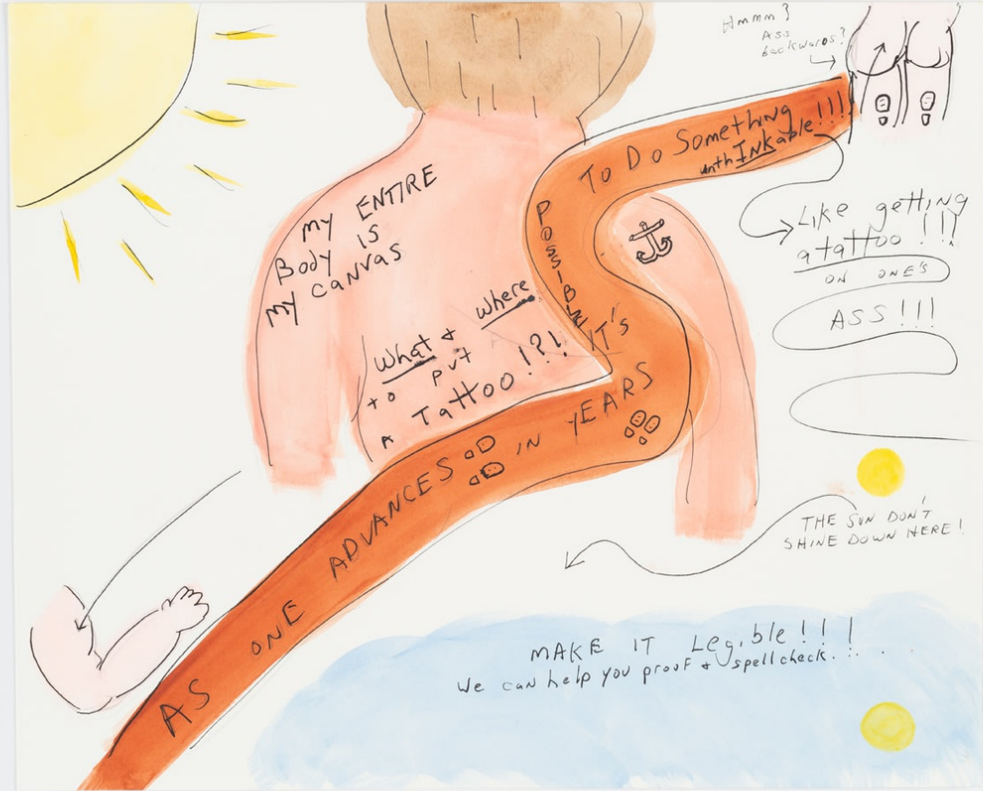 Hmmm ?
Ass
backwards?
MY ENTIRE
Body IS
MY CANVAS
What &
Where
to put
A Tattoo !?!
AS ONE ADVANCES IN YEARS
IT'S
POSSIBLE
TO DO Something
unthINKable!!!
Like getting
a tattoo !!!
ON ONE'S
ASS!!!
THE SUN DON'T
SHINE DOWN HERE!
MAKE IT Legible!!!
We can help you proof & spellcheck...